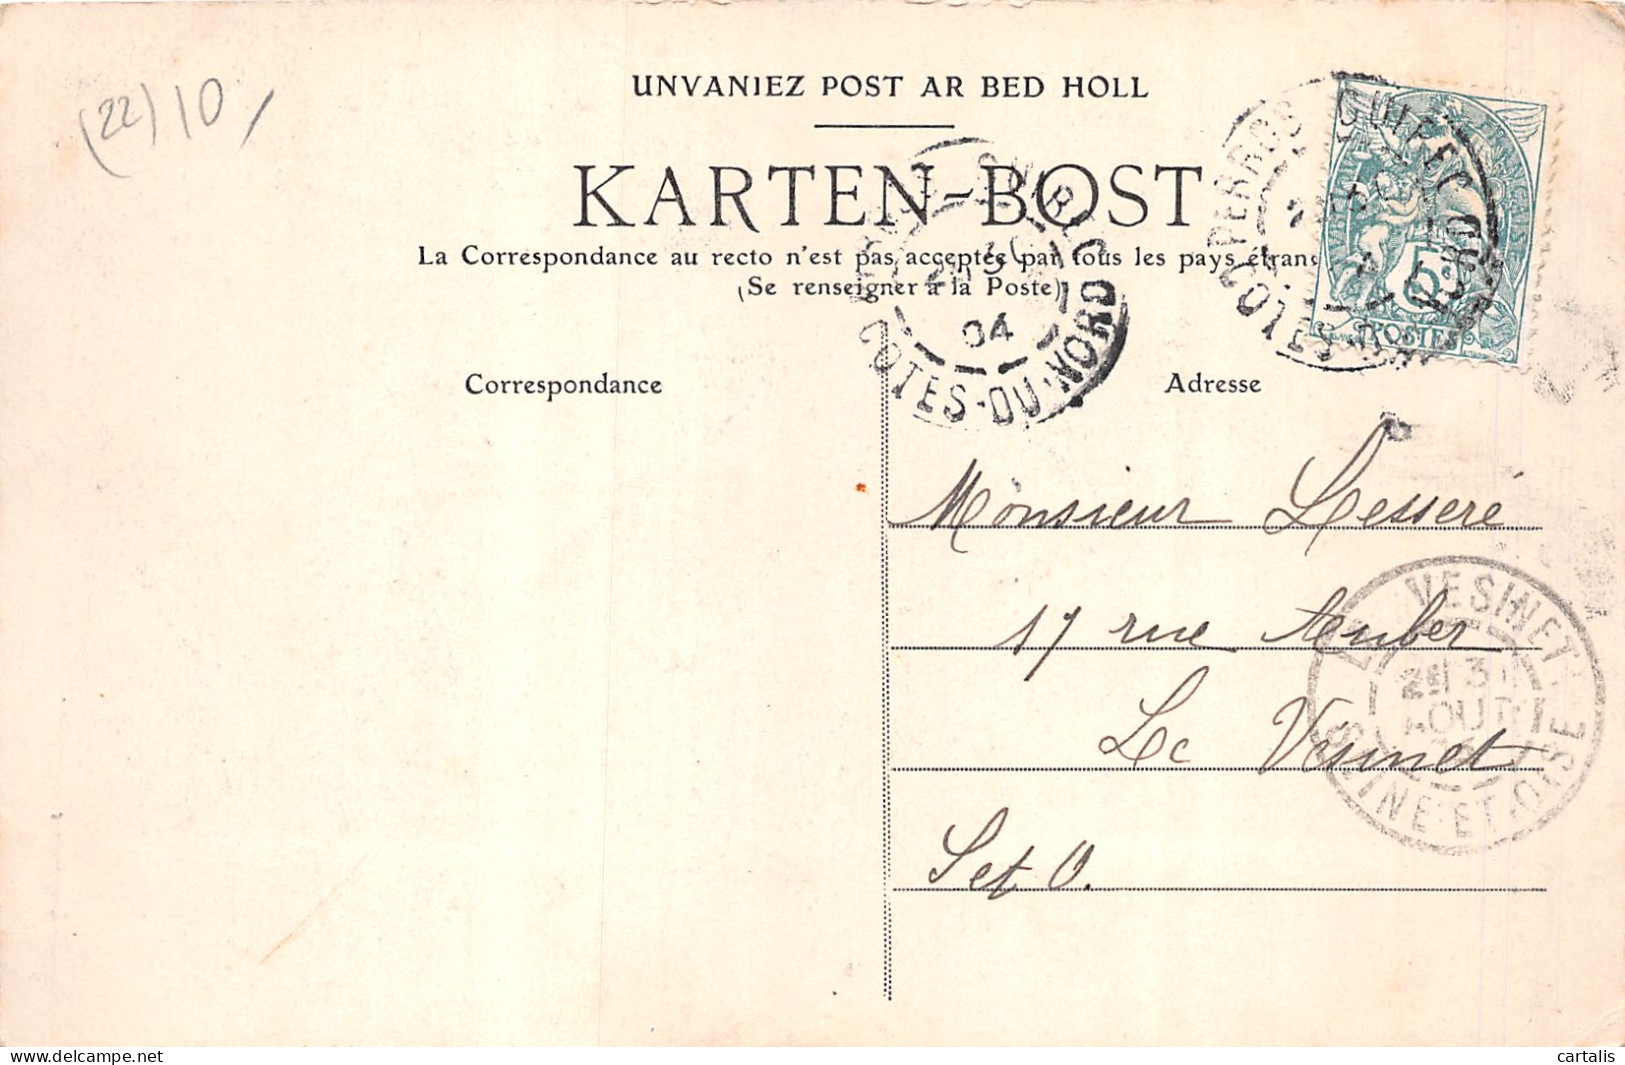 (22) 10
UNVANIEZ POST AR BED HOLL
KARTEN-BOST
La Correspondance au recto n'est pas acceptée par tous les pays étran
(Se renseigner à la Poste)
PERROS-GUIREC
COTES-DU-NORD
04
COTES-DU-NORD
5c
POSTES
Correspondance
Adresse
Monsieur Lesseré
17 rue Auber
Le Vésinet
S et O.
LE VESINET
31
AOUT
SEINE-ET-OISE
Delcampe.net
cartalis